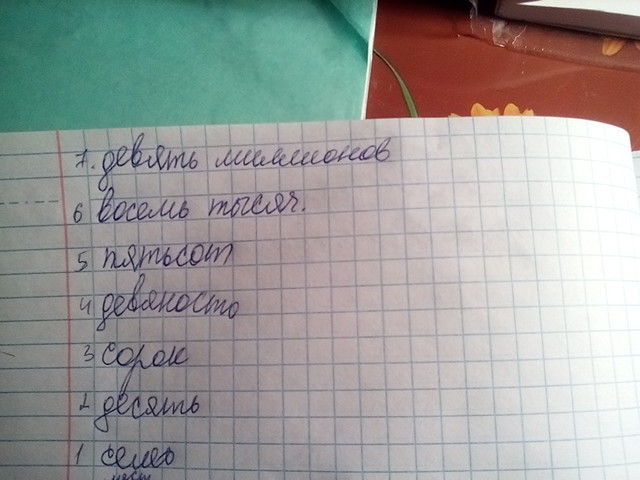 7. девять миллионов
6 восемь тысяч.
5 пятьсот
4 девяносто
3 сорок
2 десять
1